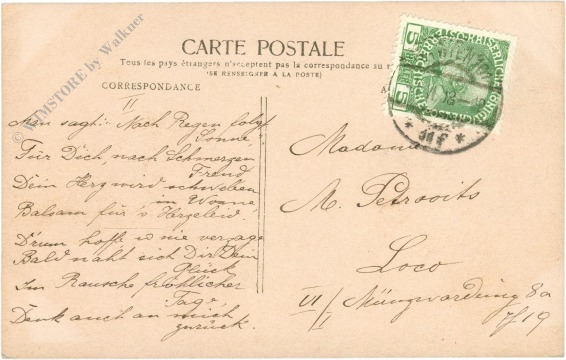 CARTE POSTALE
Tous les pays étrangers n'acceptent pas la correspondance au
(SE RENSEIGNER A LA POSTE)
CORRESPONDANCE
II
Man sagt: Nach Regen folgt
Sonne,
Für Dich, nach Schmerzen
Freud
Dein Herz wird schweben
in Wonne
Balsam für's Herzeleid.
D'rum hoffe u nie verzage
Bald naht sich Dir Dein
Glück
Im Rausche fröhlicher
Tage,
Denk auch an mich
zurück.
5
5
WIEN
Madame
M. Petrovits
Loco
VI/1 Münzwardeing 8a
7/19
WIMSTORE by Walkner